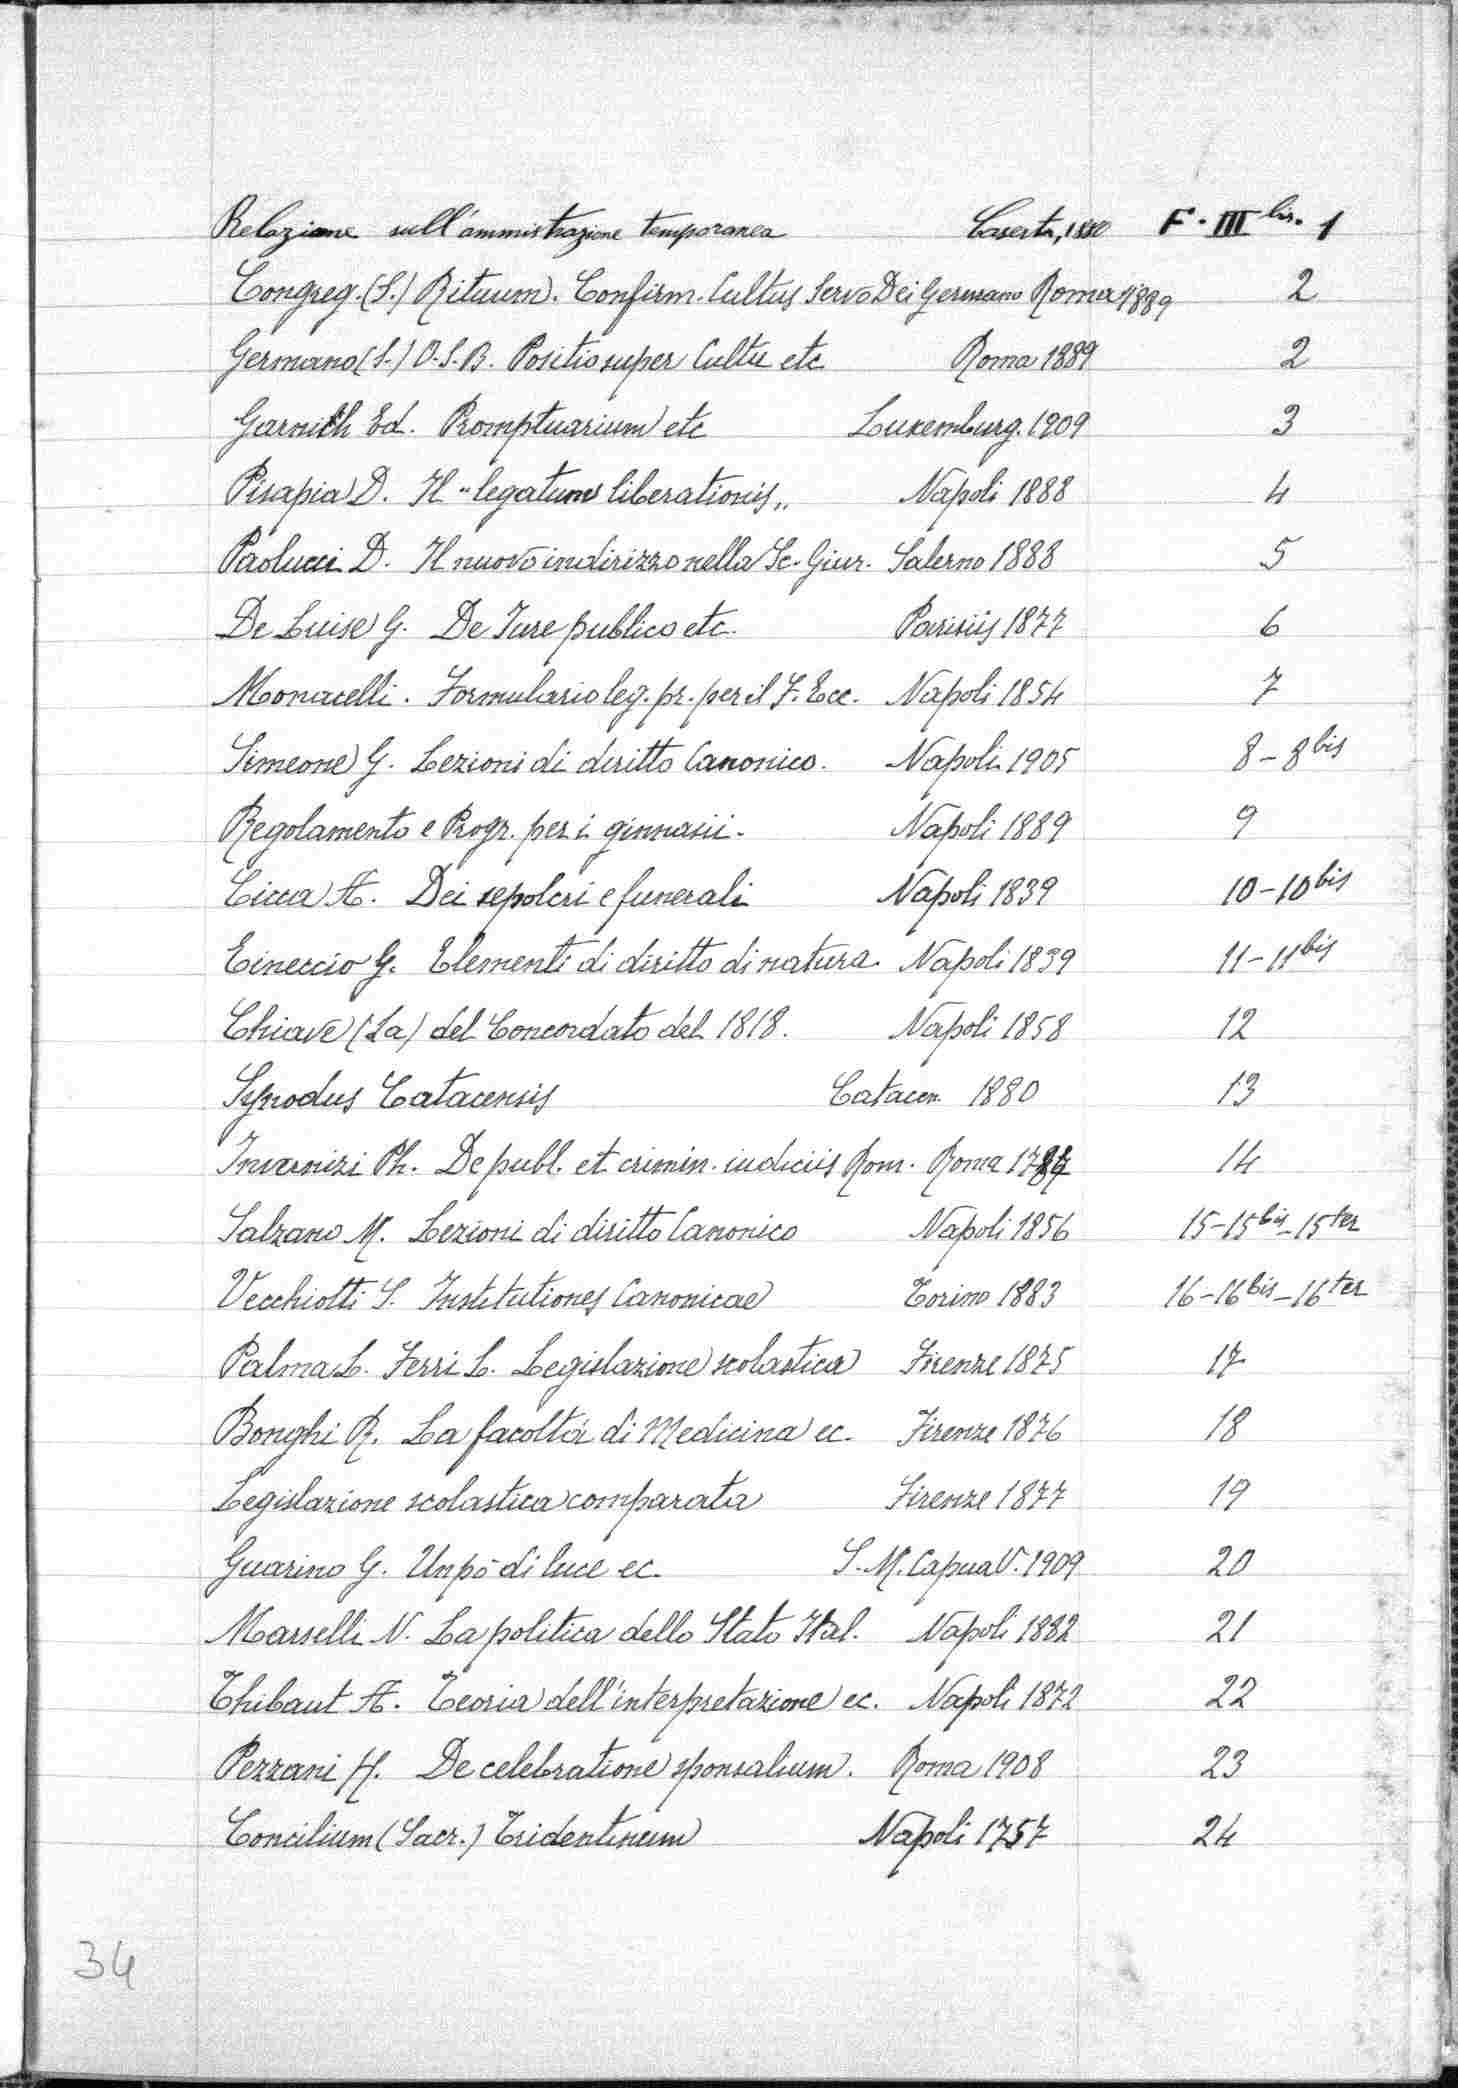 Relazione sull'ammistrazione temporanea Caserta, 1880 F. III bis. 1
Congreg. (S.) Rituum. Confirm. Cultus Servo Dei Germano Roma 1889 2
Germano (S.) O.S.B. Positio super Cultu etc Roma 1889 2
Garnich Ed. Promptuarium etc Luxemburg. 1909 3
Pisapia D. Il "legatum liberationis„ Napoli 1888 4
Paolucci D. Il nuovo indirizzo nella Sc. Giur. Salerno 1888 5
De Luise G. De Jure publico etc. Parisiis 1877 6
Monacelli. Formulario leg. pr. per il F. Ecc. Napoli 1854 7
Simeone G. Lezioni di diritto Canonico. Napoli 1905 8 - 8 bis
Regolamento e Progr. per i ginnasii. Napoli 1889 9
Cicca A. Dei sepolcri e funerali Napoli 1839 10 - 10 bis
Eineccio G. Elementi di diritto di natura. Napoli 1839 11 - 11 bis
Chiave (La) del Concordato del 1818. Napoli 1858 12
Synodus Catacensis Catacen. 1880 13
Invernizi Ph. De publ. et crimin. iudiciis Rom. Roma 1787 14
Salzano M. Lezioni di diritto Canonico Napoli 1856 15 - 15 bis - 15 ter
Vecchiotti S. Institutiones Canonicae Torino 1883 16 - 16 bis - 16 ter
Palma L. Ferri L. Legislazione scolastica Firenze 1875 17
Bonghi R. La facoltà di Medicina ec. Firenze 1876 18
Legislazione scolastica comparata Firenze 1877 19
Guarino G. Un pò di luce ec. S. M. Capua V. 1909 20
Marselli N. La politica dello Stato Ital. Napoli 1882 21
Thibaut A. Teoria dell'interpretazione ec. Napoli 1872 22
Pezzani H. De celebratione sponsalium. Roma 1908 23
Concilium (Sacr.) Tridentinum Napoli 1757 24
34